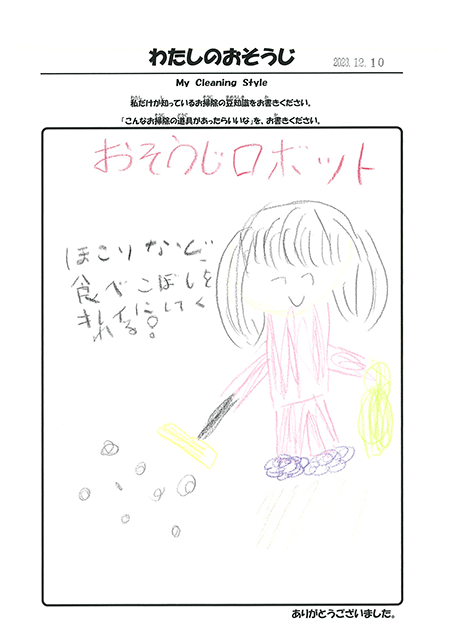 わたしのおそうじ
2023.12.10
My Cleaning Style
私だけが知っているお掃除の豆知識をお書きください。
「こんなお掃除の道具があったらいいな」を、お書きください。
おそうじロボット
ほこりなど
食べこぼしを
きれイにしてく
れる!
ありがとうございました。